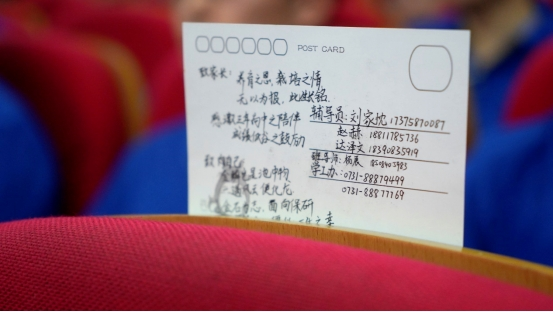 POST CARD
致家长:
养育之恩,栽培之情
无以为报,此姓铭
感谢三年高中之陪伴
之鼓励
致自己
金鳞岂是池中物
一遇风云便化龙
面向保研
辅导员:刘家忱 17375870087
赵赫 18811785736
达泽文 18390835919
班导师:杨晨
学工办:0731-88879499
0731-88877169